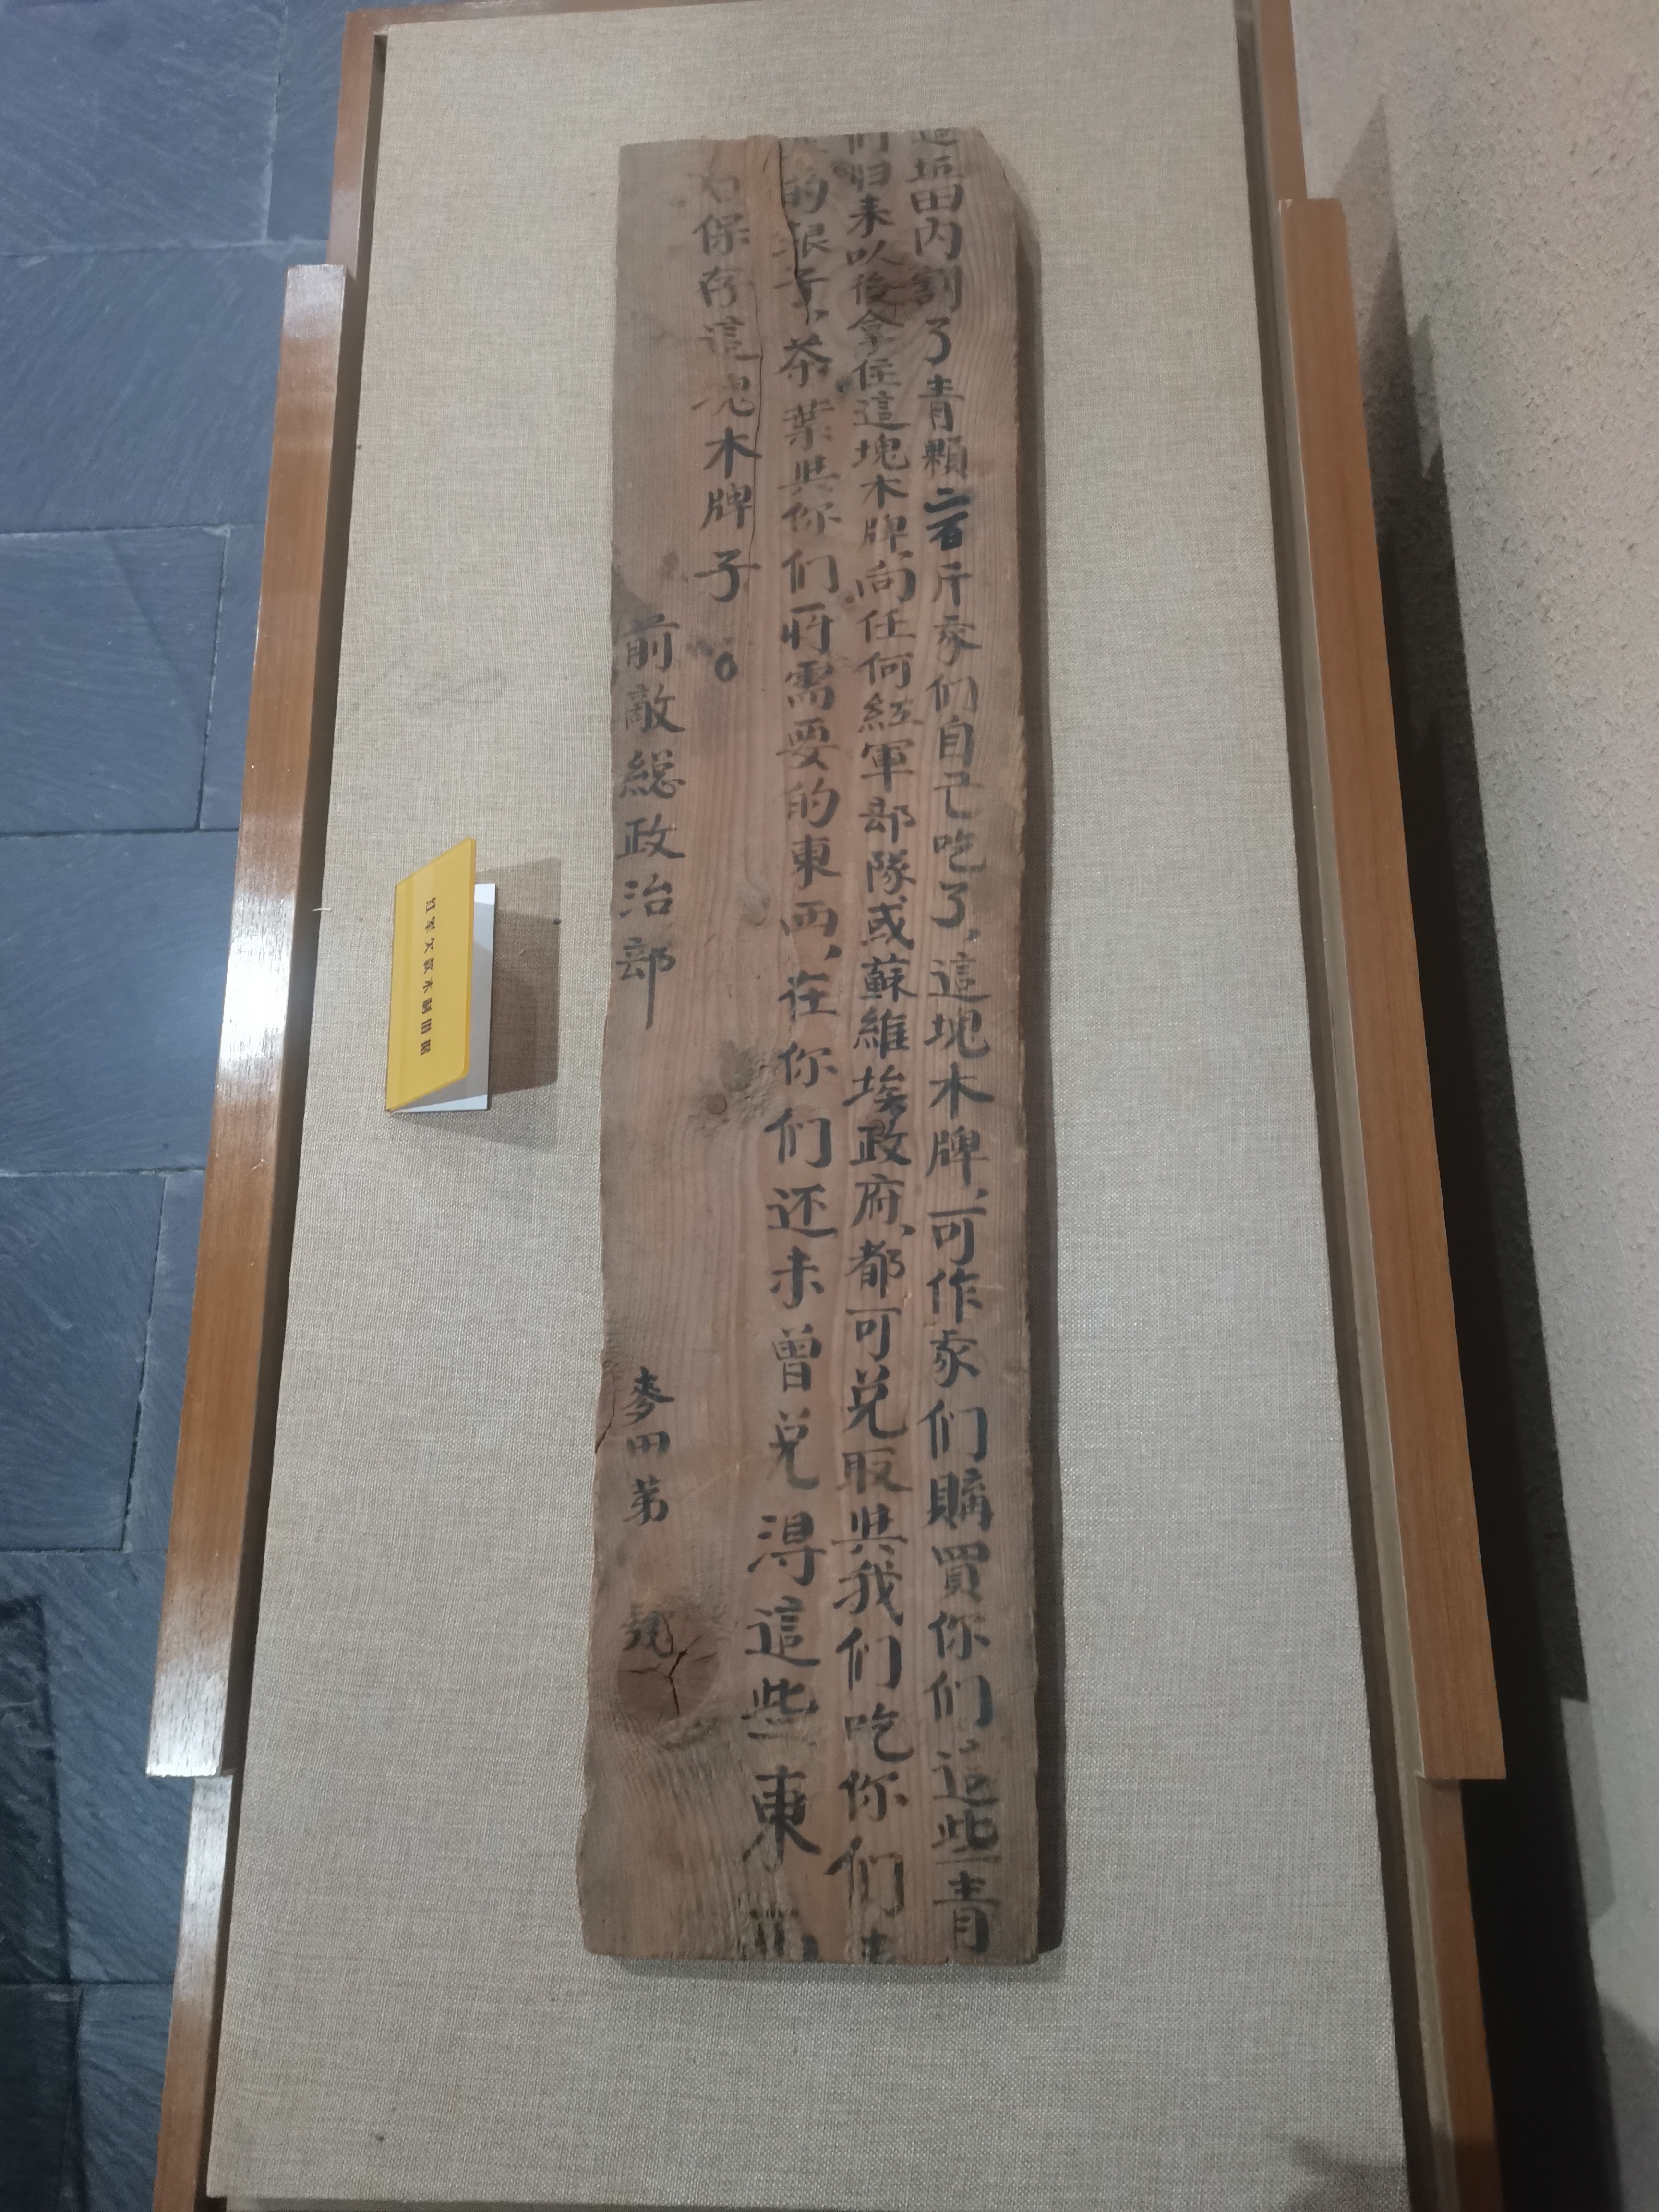 這坵田內割了青顆二百斤家们自己吃了、這塊木牌、可作家们購買你们這些青
们归来以後拿住這塊木牌、向任何紅軍部隊或蘇維埃政府、都可兑取與我们吃你们
的银子、茶葉與你们所需要的東西、在你们还未曾兑得這些東
保存這塊木牌子。
前敵總政治部
麥田第 號
红军欠款木制凹图